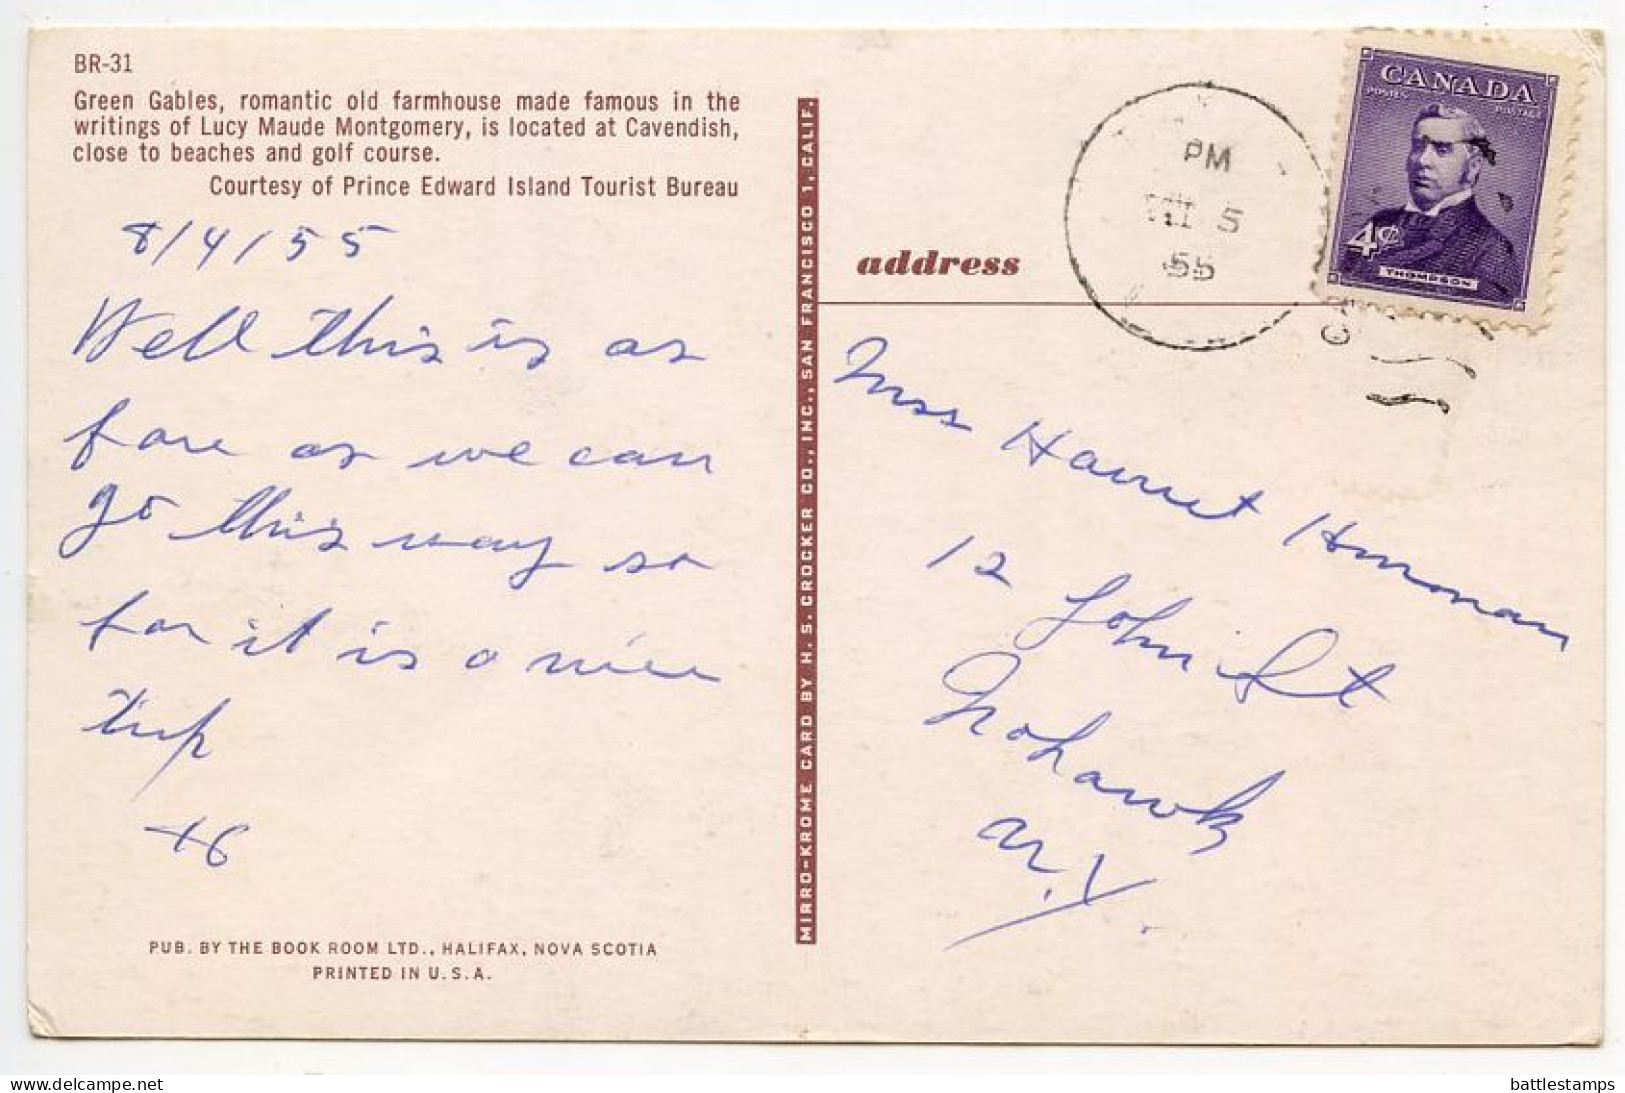 BR-31
Green Gables, romantic old farmhouse made famous in the
writings of Lucy Maude Montgomery, is located at Cavendish,
close to beaches and golf course.
Courtesy of Prince Edward Island Tourist Bureau
8/4/55
Well this is as
fare as we can
go this way so
far it is a nice
trip
HG
PUB. BY THE BOOK ROOM LTD., HALIFAX, NOVA SCOTIA
PRINTED IN U.S.A.
MIRRO-KROME CARD BY H. S. CROCKER CO., INC., SAN FRANCISCO 1, CALIF.
address
PM
5
55
CANADA
POSTES POSTAGE
4¢
THOMPSON
Miss Harriet
12 John St
Mohawk
N.Y.
www.delcampe.net
battlestamps